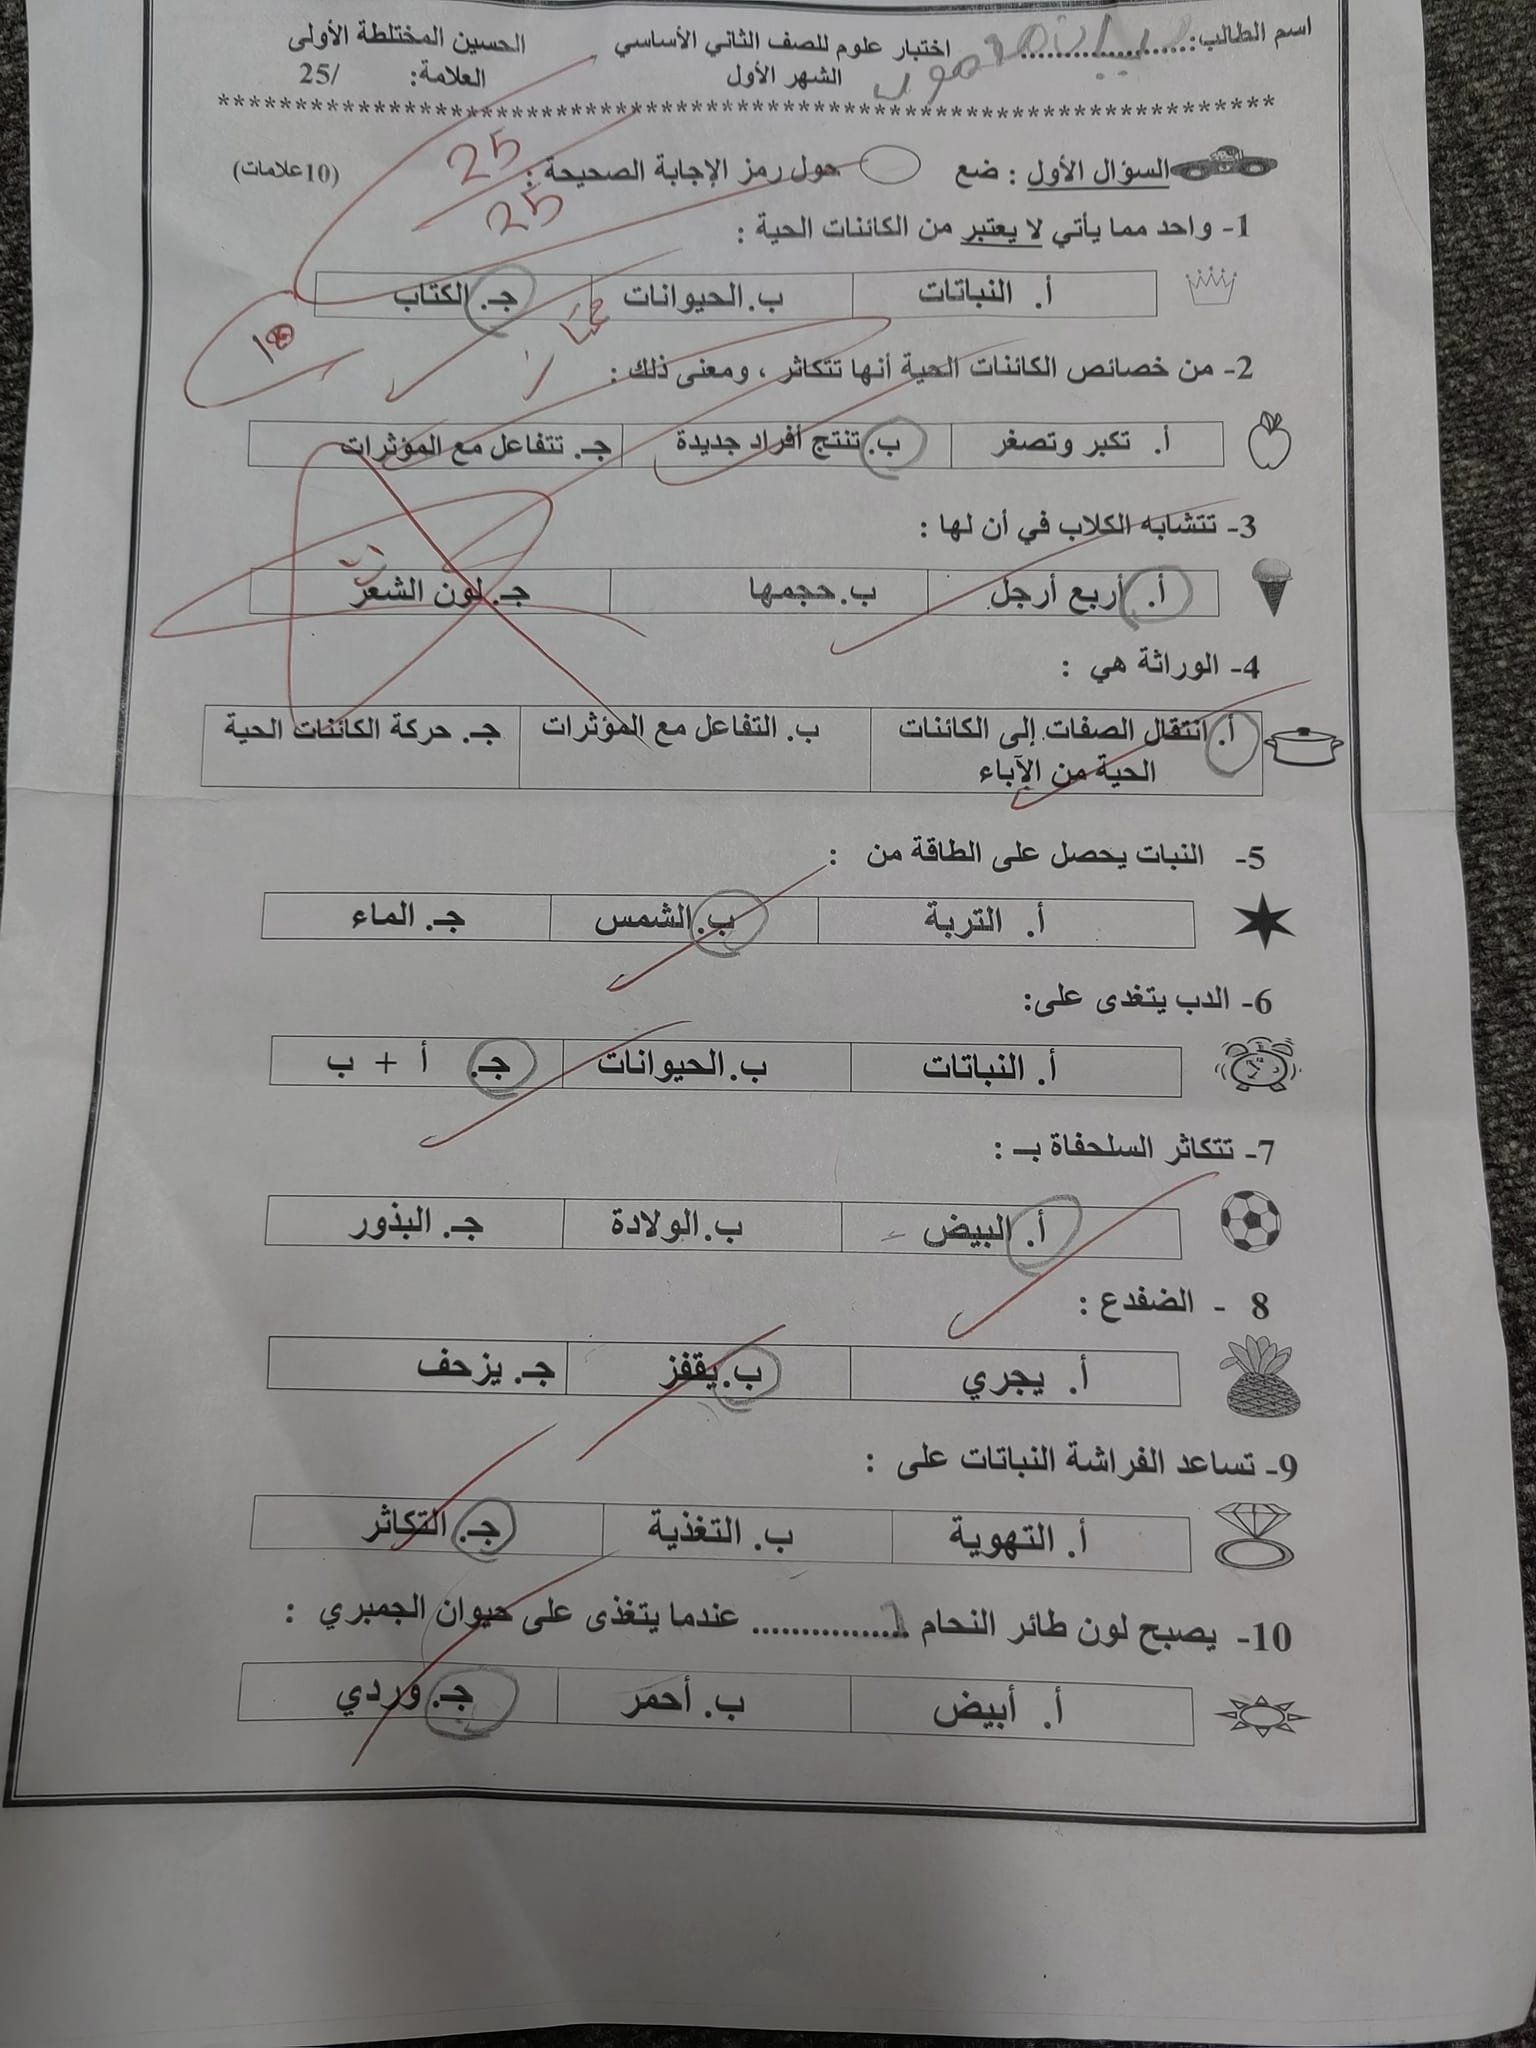 اسم الطالب:..................... اختبار علوم للصف الثاني الأساسي الحسين المختلطة الأولى
الشهر الأول العلامة: /25
************************************************************
25
25
السؤال الأول : ضع حول رمز الإجابة الصحيحة : (10علامات)
1- واحد مما يأتي لا يعتبر من الكائنات الحية :
أ. النباتات ب. الحيوانات جـ. الكتاب
2- من خصائص الكائنات الحية أنها تتكاثر ، ومعنى ذلك :
أ. تكبر وتصغر ب. تنتج أفراد جديدة جـ. تتفاعل مع المؤثرات
3- تتشابه الكلاب في أن لها :
أ. أربع أرجل ب. حجمها جـ. لون الشعر
4- الوراثة هي :
أ. انتقال الصفات إلى الكائنات الحية من الآباء ب. التفاعل مع المؤثرات جـ. حركة الكائنات الحية
5- النبات يحصل على الطاقة من :
أ. التربة ب. الشمس جـ. الماء
6- الدب يتغدى على:
أ. النباتات ب. الحيوانات جـ. أ + ب
7- تتكاثر السلحفاة بـ :
أ. البيض ب. الولادة جـ. البذور
8 - الضفدع :
أ. يجري ب. يقفز جـ. يزحف
9- تساعد الفراشة النباتات على :
أ. التهوية ب. التغذية جـ. التكاثر
10- يصبح لون طائر النحام ............... عندما يتغذى على حيوان الجمبري :
أ. أبيض ب. أحمر جـ. وردي